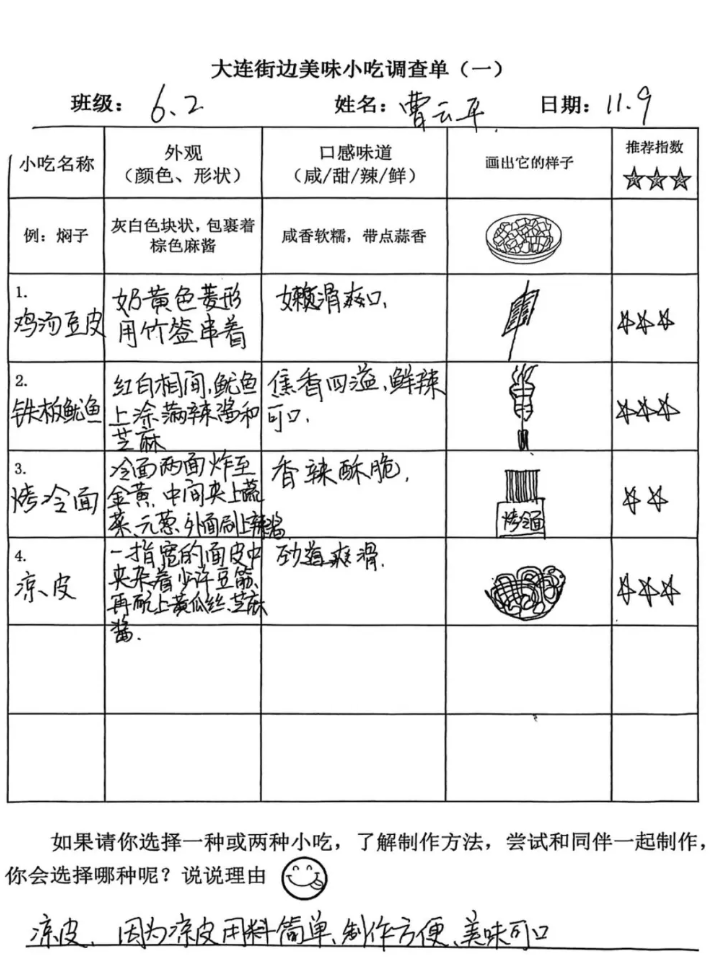 大连街边美味小吃调查单（一）
班级： 6.2 姓名：曹云平 日期：11.9
小吃名称 外观（颜色、形状） 口感味道（咸/甜/辣/鲜） 画出它的样子 推荐指数 ☆☆☆
例：焖子 灰白色块状，包裹着棕色麻酱 咸香软糯，带点蒜香
1.
鸡汤豆皮 奶黄色菱形 嫩滑爽口,
用竹签串着
2.
铁板鱿鱼 红白相间,鱿鱼 焦香四溢,鲜辣
上涂满辣酱和 可口.
芝麻
3.
烤冷面 冷面两面炸至 香辣酥脆,
金黄,中间夹上蔬
菜、元葱.外面刷上辣酱
烤冷面
4.
凉皮 一指宽的面皮中 劲道爽滑.
夹杂着少许豆筋,
再配上黄瓜丝、芝麻
酱.
如果请你选择一种或两种小吃，了解制作方法，尝试和同伴一起制作，
你会选择哪种呢？说说理由
凉皮、因为凉皮用料简单、制作方便、美味可口